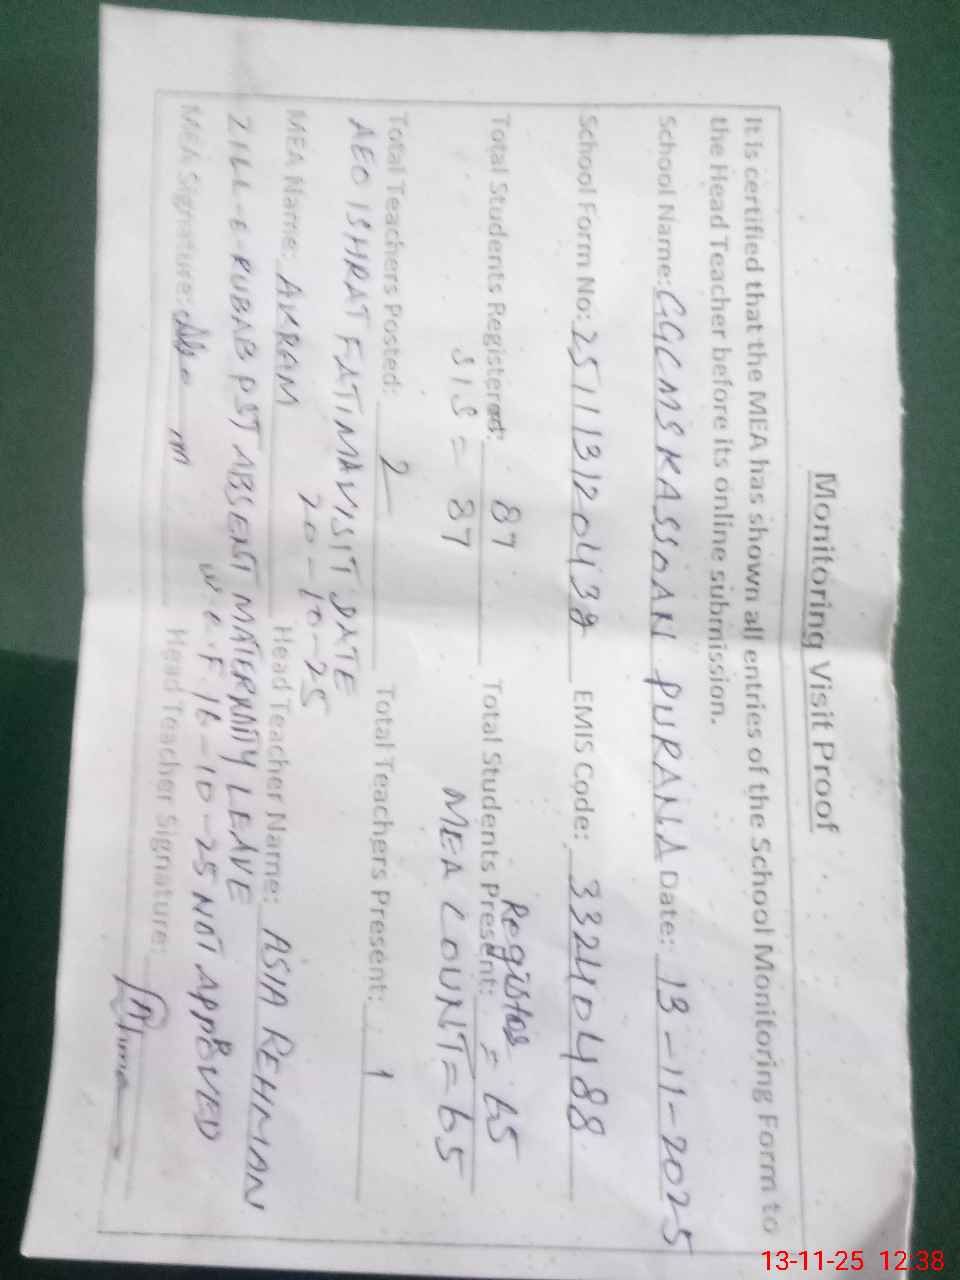 Monitoring Visit Proof
It is certified that the MEA has shown all entries of the School Monitoring Form to
the Head Teacher before its online submission.
School Name: GGCMS KASSOAN PURANA Date: 13-11-2025
School Form No: 251113120438 EMIS Code: 33240488
Total Students Registered: 87 Total Students Present: Register = 65
SIS = 87 MEA COUNT = 65
Total Teachers Posted: 2 Total Teachers Present: 1
AEO ISHRAT FATIMA VISIT DATE
20-10-25
MEA Name: AKRAM Head Teacher Name: ASIA REHMAN
ZILL-E-RUBAB PST ABSENT MATERNITY LEAVE
W.E.F 16-10-25 NOT APPROVED
MEA Signature: Head Teacher Signature:
13-11-25 12:38